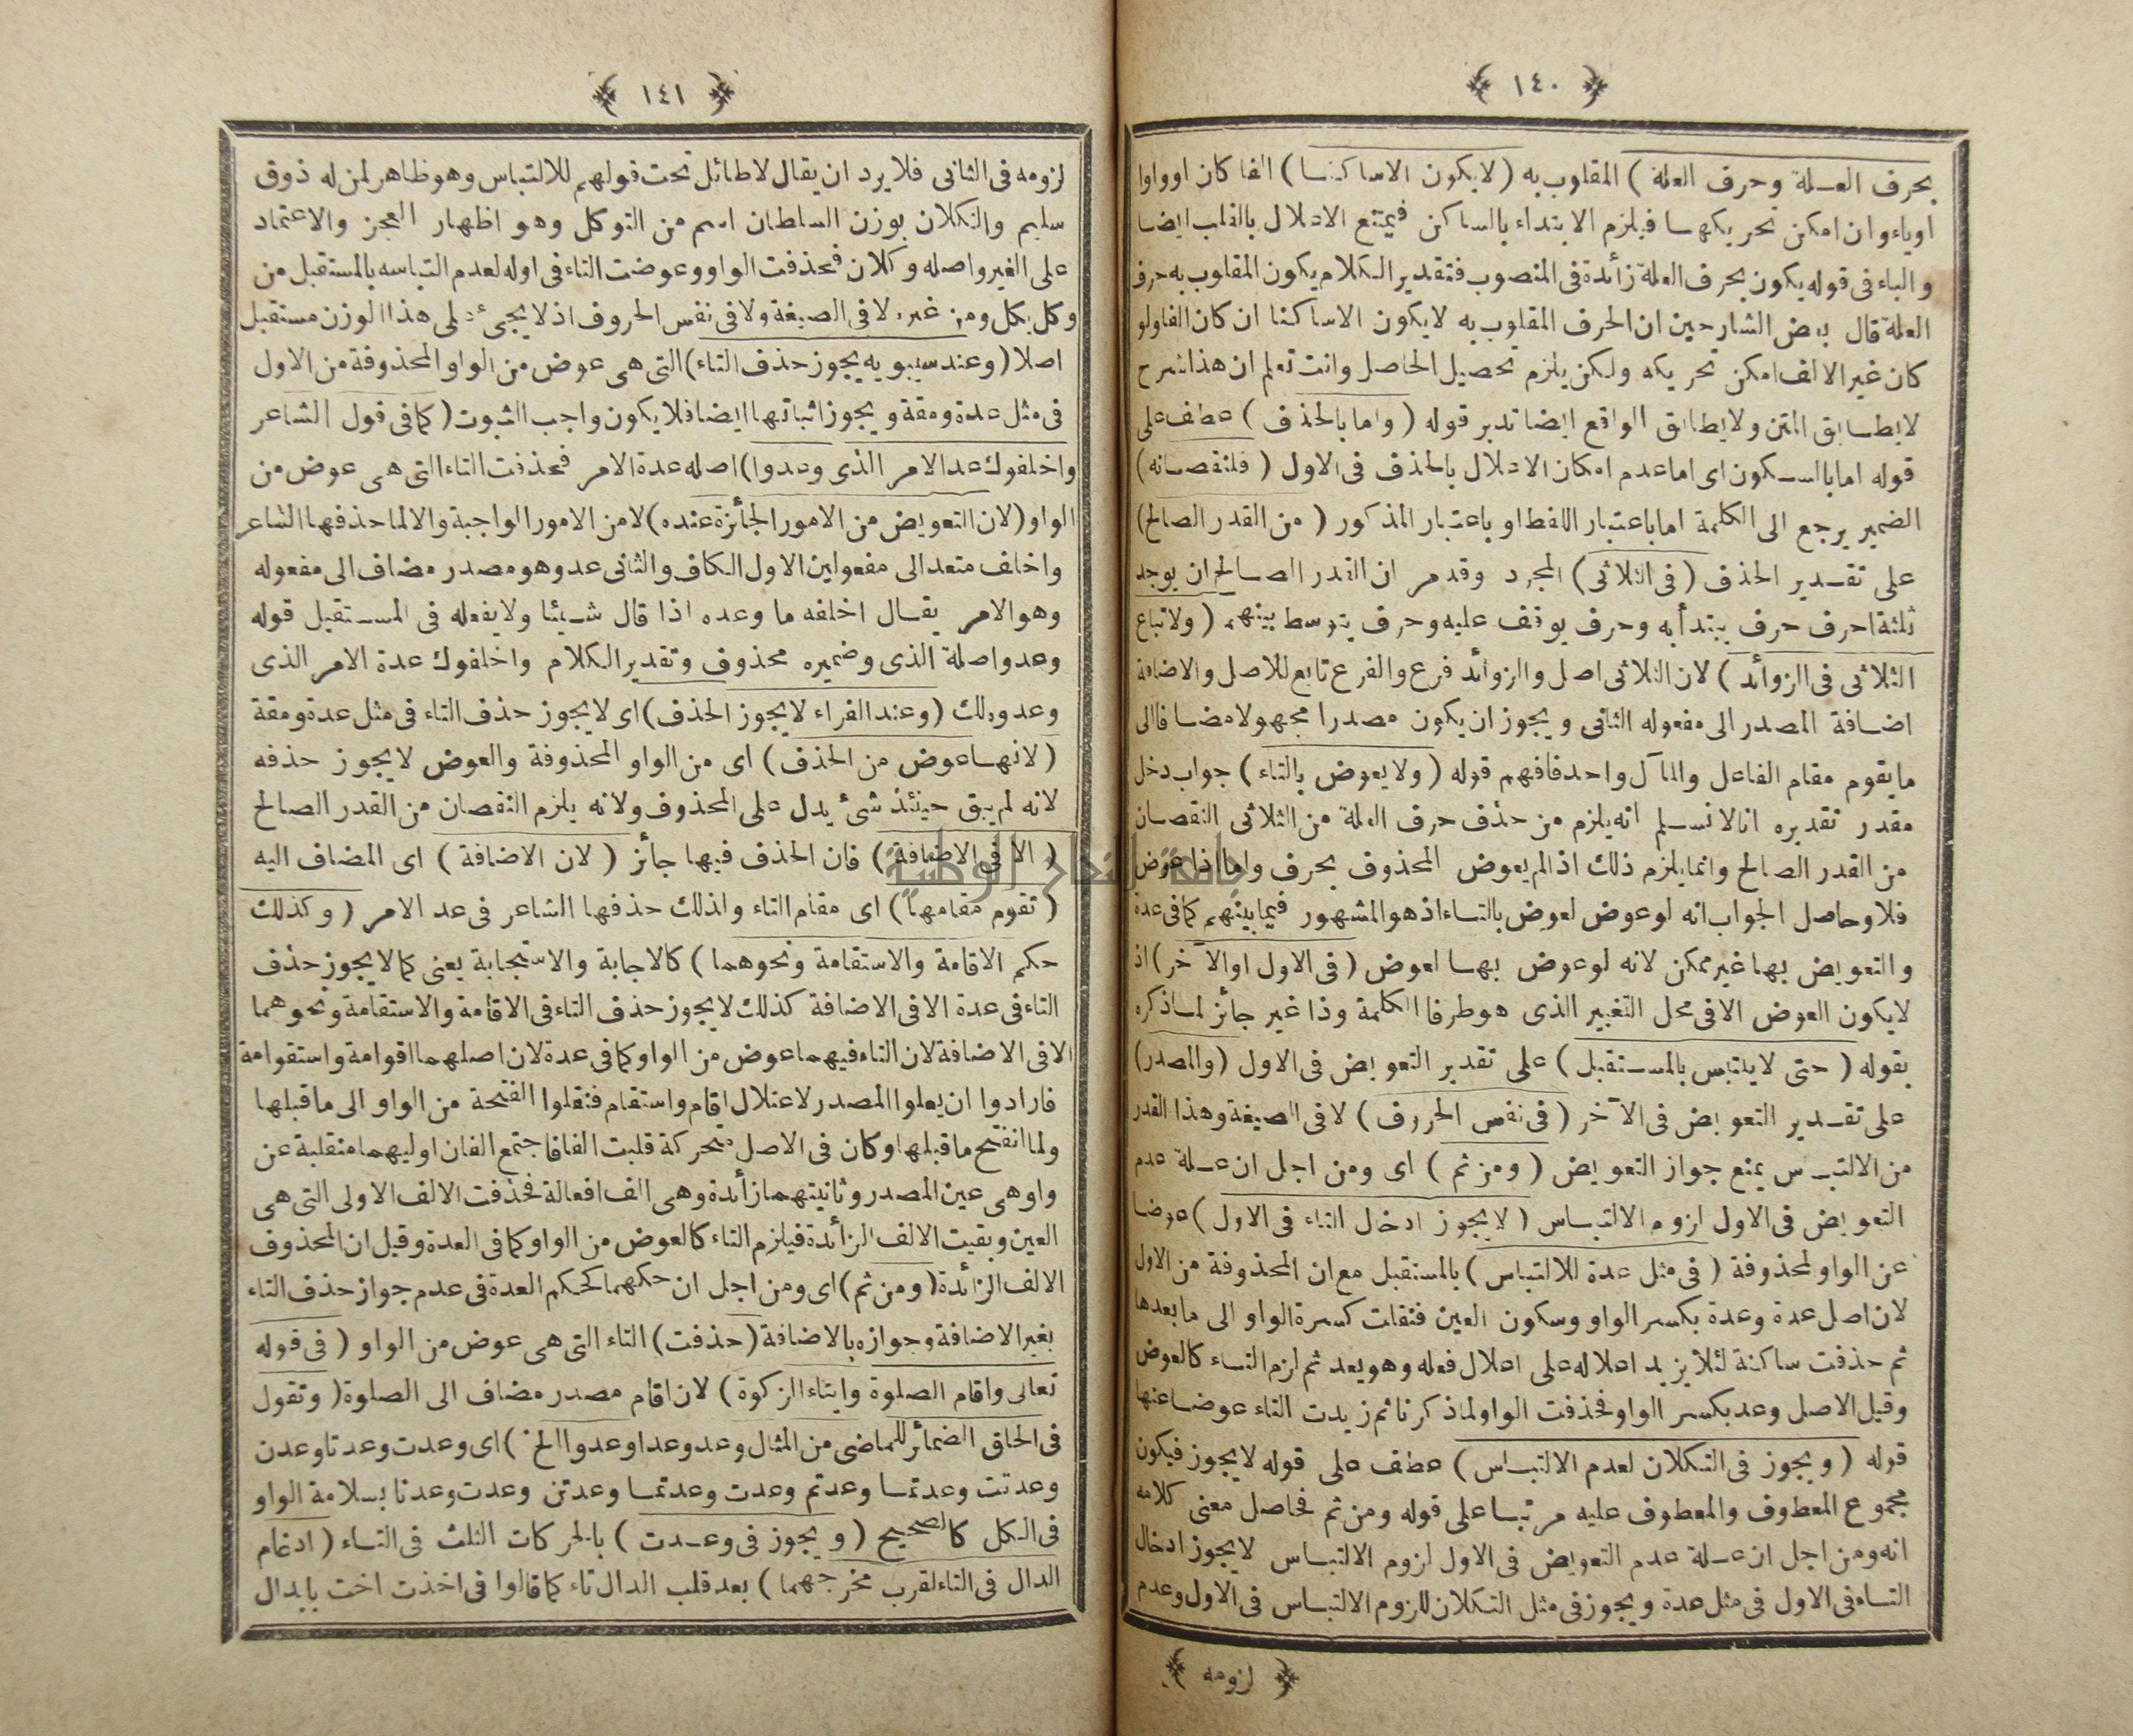 ﴿ ١٤٠ ﴾
بحرف العلة وحرف العلة ) المقلوب به ( لا يكون الا ساكنا ) الفا كان او واوا
او ياء وان امكن تحريكهما فيلزم الابتداء بالساكن فيمتنع الاعلال بالقلب ايضا
والباء فى قوله يكون بحرف العلة زائدة فى المنصوب فتقدير الكلام يكون المقلوب به حرف
العلة قال بعض الشارحين ان الحرف المقلوب به لا يكون الا ساكنا ان كان الفا ولو
كان غير الالف امكن تحريكه ولكن يلزم تحصيل الحاصل وانت تعلم ان هذا شرح
لا يطابق المتن ولا يطابق الواقع ايضا تدبر قوله ( واما بالحذف ) عطف على
قوله اما بالسكون اى اما عدم امكان الاعلال بالحذف فى الاول ( فلنقصانه )
الضمير يرجع الى الكلمة اما باعتبار اللفظ او باعتبار المذكور ( من القدر الصالح )
على تقدير الحذف ( فى الثلاثى ) المجرد وقد مر ان القدر الصالح ان يوجد
ثلثة احرف حرف يبتدأ به وحرف يوقف عليه وحرف يتوسط بينهما ( ولاتباع
الثلاثى فى الزوائد ) لان الثلاثى اصل والزوائد فرع والفرع تابع للاصل والاضافة
اضافة المصدر الى مفعوله الثانى ويجوز ان يكون مصدرا مجهولا مضافا الى
ما يقوم مقام الفاعل والمآل واحد فافهم قوله ( ولا يعوض بالتاء ) جواب دخل
مقدر تقديره انا لا نسلم انه يلزم من حذف حرف العلة من الثلاثى النقصان
من القدر الصالح وانما يلزم ذلك اذا لم يعوض المحذوف بحرف واما اذا عوض
فلا وحاصل الجواب انه لو عوض لعوض بالتاء اذ هو المشهور فيما بينهم كما فى عدة
والتعويض بها غير ممكن لانه لو عوض بها لعوض ( فى الاول او الآخر ) اذ
لا يكون العوض الا فى محل التغيير الذى هو طرفا الكلمة وذا غير جائز لما ذكره
بقوله ( حتى لا يلتبس بالمستقبل ) على تقدير التعويض فى الاول ( والمصدر )
على تقدير التعويض فى الآخر ( فى نفس الحروف ) لا فى الصيغة وهذا القدر
من الالتباس يمنع جواز التعويض ( ومن ثم ) اى ومن اجل ان علة عدم
التعويض فى الاول لزوم الالتباس ( لا يجوز ادخال التاء فى الاول ) عوضا
عن الواو المحذوفة ( فى مثل عدة للالتباس ) بالمستقبل مع ان المحذوفة من الاول
لان اصل عدة وعدة بكسر الواو وسكون العين فنقلت كسرة الواو الى ما بعدها
ثم حذفت ساكنة لئلا يزيد اعلاله على اعلال فعله وهو يعد ثم لزم التاء كالعوض
وقيل الاصل وعد بكسر الواو فحذفت الواو لما ذكرنا ثم زيدت التاء عوضا عنها
قوله ( ويجوز فى التكلان لعدم الالتباس ) عطف على قوله لا يجوز فيكون
مجموع المعطوف والمعطوف عليه مرتبا على قوله ومن ثم فحاصل معنى كلامه
انه ومن اجل ان علة عدم التعويض فى الاول لزوم الالتباس لا يجوز ادخال
التاء فى الاول فى مثل عدة ويجوز فى مثل التكلان للزوم الالتباس فى الاول وعدم
﴿ لزومه ﴾
﴿ ١٤١ ﴾
لزومه فى الثانى فلا يرد ان يقال لا طائل تحت قولهم للالتباس وهو ظاهر لمن له ذوق
سليم والتكلان بوزن السلطان اسم من التوكل وهو اظهار العجز والاعتماد
على الغير واصله وكلان فحذفت الواو وعوضت التاء فى اوله لعدم التباسه بالمستقبل من
وكل يكل ومن غيره لا فى الصيغة ولا فى نفس الحروف اذ لا يجئ على هذا الوزن مستقبل
اصلا ( وعند سيبويه يجوز حذف التاء ) التى هى عوض من الواو المحذوفة من الاول
فى مثل عدة ومقة ويجوز اثباتها ايضا فلا يكون واجب الثبوت ( كما فى قول الشاعر
واخلفوك عد الامر الذى وعدوا ) اصله عدة الامر فحذفت التاء التى هى عوض من
الواو ( لان التعويض من الامور الجائزة عنده ) لا من الامور الواجبة والا لما حذفها الشاعر
واخلف متعد الى مفعولين الاول الكاف والثانى عد وهو مصدر مضاف الى مفعوله
وهو الامر يقال اخلفه ما وعده اذا قال شيئا ولا يفعله فى المستقبل قوله
وعدوا صلة الذى وضميره محذوف وتقدير الكلام واخلفوك عدة الامر الذى
وعدوه لك ( وعند الفراء لا يجوز الحذف ) اى لا يجوز حذف التاء فى مثل عدة ومقة
( لانها عوض من الحذف ) اى من الواو المحذوفة والعوض لا يجوز حذفه
لانه لم يبق حينئذ شئ يدل على المحذوف ولانه يلزم النقصان من القدر الصالح
( الا فى الاضافة ) فان الحذف فيها جائز ( لان الاضافة ) اى المضاف اليه
( تقوم مقامها ) اى مقام التاء ولذلك حذفها الشاعر فى عد الامر ( وكذلك
حكم الاقامة والاستقامة ونحوهما ) كالاجابة والاستجابة يعنى كما لا يجوز حذف
التاء فى عدة الا فى الاضافة كذلك لا يجوز حذف التاء فى الاقامة والاستقامة ونحوهما
الا فى الاضافة لان التاء فيهما عوض من الواو كما فى عدة لان اصلهما اقوامة واستقوامة
فارادوا ان يعلوا المصدر لاعتلال اقام واستقام فنقلوا الفتحة من الواو الى ما قبلها
ولما انفتح ما قبلها وكان فى الاصل متحركة قلبت الفا فاجتمع الفان اوليهما منقلبة عن
واو هى عين المصدر وثانيتهما زائدة وهى الف افعالة فحذفت الالف الاولى التى هى
العين وبقيت الالف الزائدة فيلزم التاء كالعوض من الواو كما فى العدة وقيل ان المحذوف
الالف الزائدة ( ومن ثم ) اى ومن اجل ان حكمهما كحكم العدة فى عدم جواز حذف التاء
بغير الاضافة وجوازه بالاضافة ( حذفت ) التاء التى هى عوض من الواو ( فى قوله
تعالى واقام الصلوة وايتاء الزكوة ) لان اقام مصدر مضاف الى الصلوة ( وتقول
فى الحاق الضمائر للماضى من المثال وعد وعدا وعدوا الخ ) اى وعدت وعدتا وعدن
وعدت وعدتما وعدتم وعدت وعدتما وعدتن وعدت وعدنا بسلامة الواو
فى الكل كالصحيح ( ويجوز فى وعدت ) بالحركات الثلث فى التاء ( ادغام
الدال فى التاء لقرب مخرجهما ) بعد قلب الدال تاء كما قالوا فى اخذت اخت بابدال
جامعة النجاح الوطنية